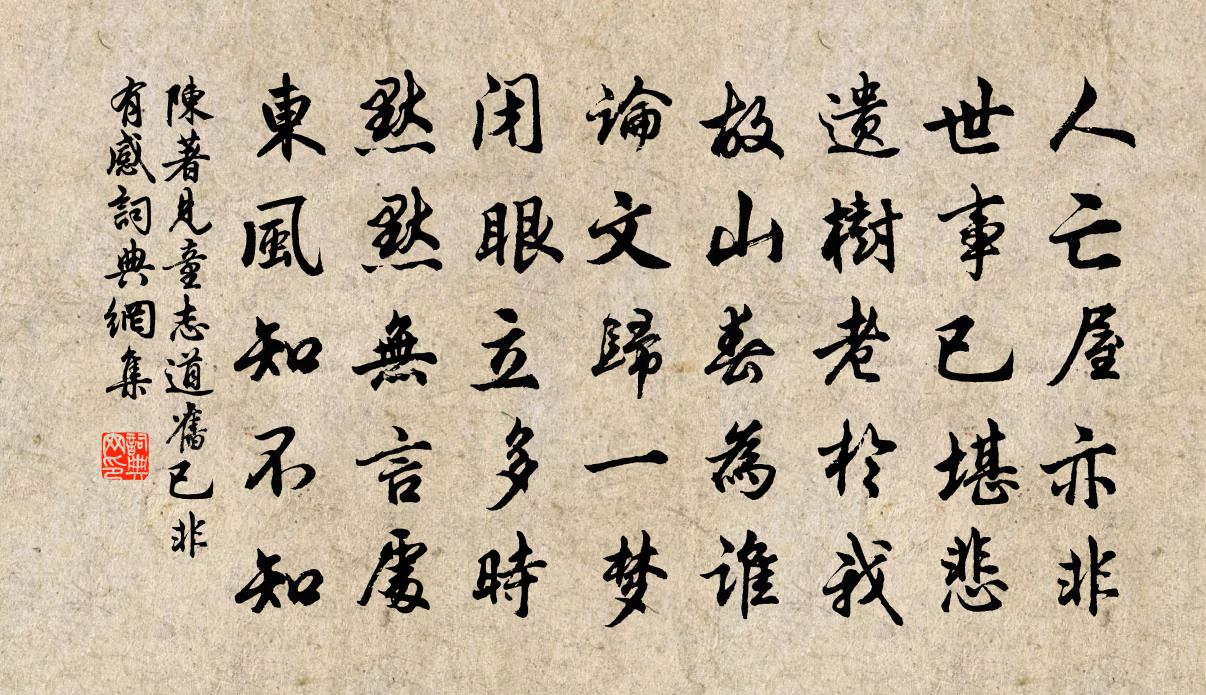 人亡屋亦非
世事已堪悲
遗樹老於我
故山春為誰
論文歸一梦
闭眼立多時
默默無言處
東風知不知
陳著見童志道舊已非
有感詞典網集
詞典網印